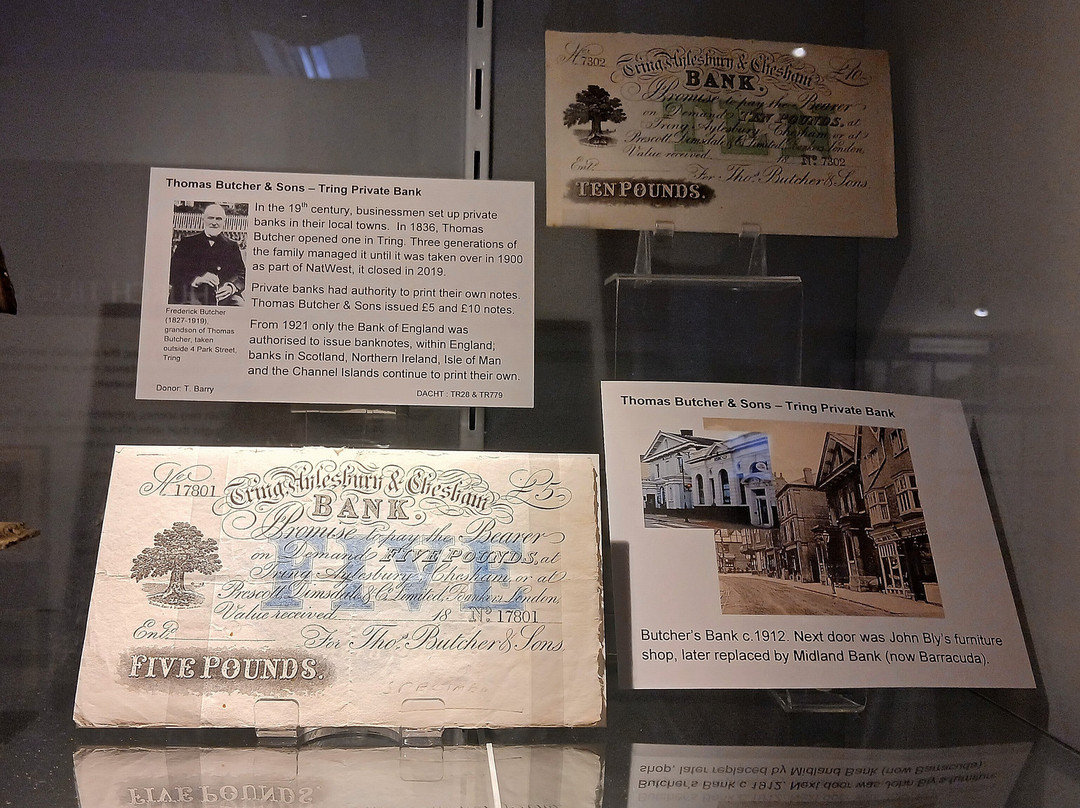 Thomas Butcher & Sons – Tring Private Bank
In the 19th century, businessmen set up private
banks in their local towns. In 1836, Thomas
Butcher opened one in Tring. Three generations of
the family managed it until it was taken over in 1900
as part of NatWest, it closed in 2019.
Private banks had authority to print their own notes.
Thomas Butcher & Sons issued £5 and £10 notes.
From 1921 only the Bank of England was
authorised to issue banknotes, within England;
banks in Scotland, Northern Ireland, Isle of Man
and the Channel Islands continue to print their own.
Frederick Butcher
(1827-1919),
grandson of Thomas
Butcher, taken
outside 4 Park Street,
Tring
Donor: T. Barry
DACHT : TR28 & TR779
No 7302
Tring Aylesbury & Chesham
£10
BANK.
Promise to pay the Bearer
on Demand TEN POUNDS, at
Tring Aylesbury Chesham or at
Prescott Dimsdale & Co Limited Bankers London,
Value received 18 No 7302
TEN
Entd
For Thos Butcher & Sons
TEN POUNDS.
No 17801
Tring Aylesbury & Chesham
£5
BANK.
Promise to pay the Bearer
on Demand FIVE POUNDS, at
Tring Aylesbury Chesham or at
Prescott Dimsdale & Co Limited Bankers London,
Value received 18 No 17801
FIVE
Entd
For Thos Butcher & Sons
FIVE POUNDS.
Thomas Butcher & Sons – Tring Private Bank
Butcher's Bank c.1912. Next door was John Bly's furniture
shop, later replaced by Midland Bank (now Barracuda).